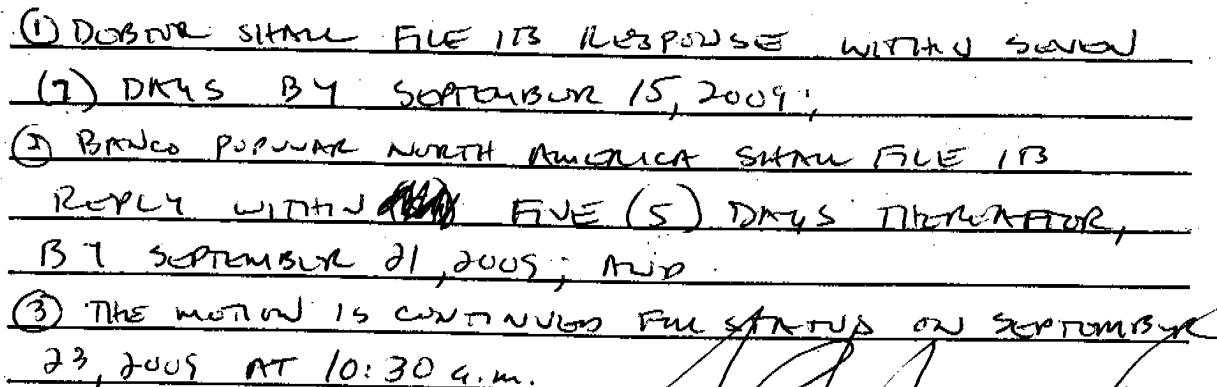 ① DEBTOR SHALL FILE ITS RESPONSE WITHIN SEVEN
(7) DAYS BY SEPTEMBER 15, 2009;
② BANCO POPULAR NORTH AMERICA SHALL FILE ITS
REPLY WITHIN FIVE (5) DAYS THEREAFTER,
BY SEPTEMBER 21, 2009; AND
③ THE MOTION IS CONTINUED FOR STATUS ON SEPTEMBER
23, 2009 AT 10:30 a.m.